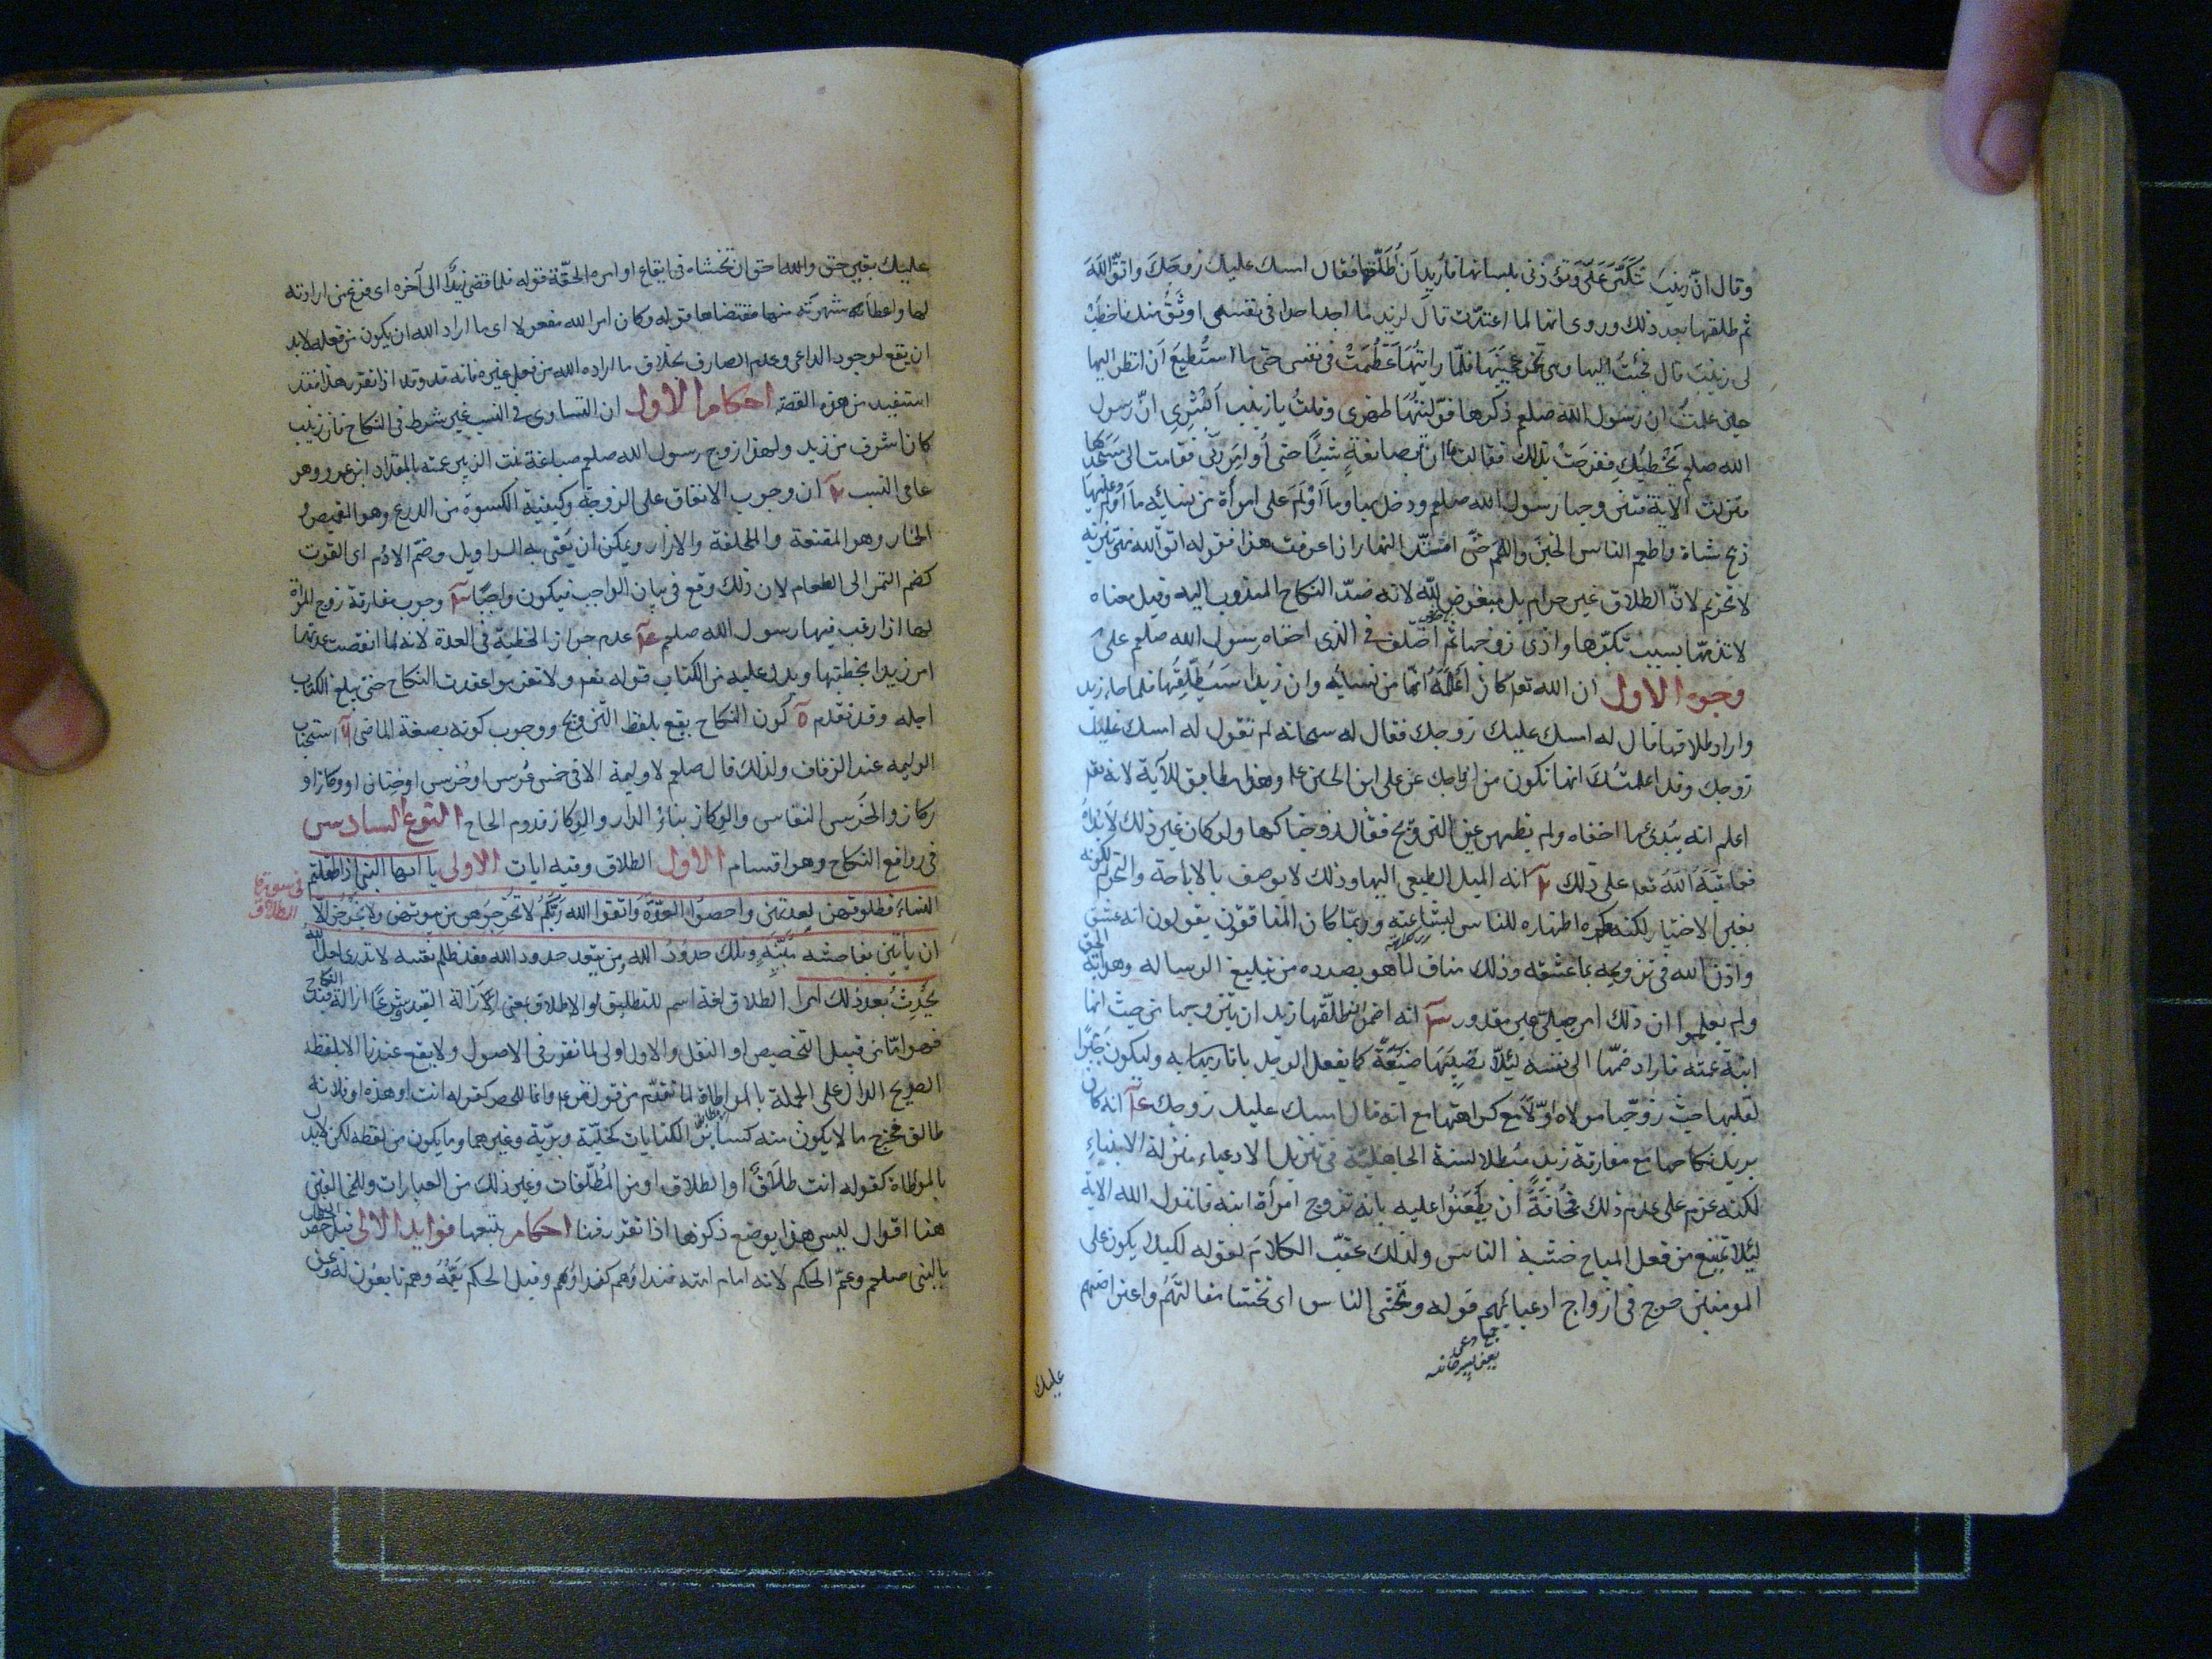 وقال انّ زينب تتكبّر علىّ وتؤذنى بلسانها فاريد ان أطلّقها فقال امسك عليك زوجك واتّق اللّه
ثم طلقها بعد ذلك وروى انها لما اعتدّت قال لزيد ما اجد احدا فى نفسى اوثق منك فاخطب
لى زينب قال فجئت اليها وهى تخمر عجينها فلمّا رايتها عظمت فى نفسى حتى ما استطيع أن انظر اليها
حين علمت ان رسول الله صلعم ذكرها فولّيتها ظهرى وقلت يا زينب أبشرى انّ رسول
الله صلعم يخطبك ففرحت بذلك فقالت ما انا بصانعة شيئا حتى أوامر ربّى فقامت الى مسجدها
فنزلت الآية فتزوجها رسول الله صلعم ودخل بها وما أولم على امرأة من نسائه ما أولم عليها
ذبح شاة واطعم الناس الخبز واللحم حتى امتدّ النهار اذا عرفت هذا فقوله اتق الله نهى تنزيه
لا تحريم لانّ الطلاق غير حرام بل مبغوض للّه لانه ضدّ النكاح المندوب اليه وقيل معناه
لا تذمّها بسبب تكبّرها واذى زوجها ثم اختلف فى الذى اخفاه رسول الله صلعم على
وجوه الاول ان الله تعا كان أعلمه انها من نسائه وان زيدا سيطلّقها فلما جاء زيد
واراد طلاقها قال له امسك عليك زوجك فقال له سبحانه لم تقول له امسك عليك
زوجك وقد اعلمتك انها تكون من ازواجك عن على ابن الحسين علم وهذا مطابق للآية لانه تعا
اعلم انه يبدئ ما اخفاه ولم يظهر غير التزويج فقال زوجناكها ولو كان غير ذلك لأبداه
فعاتبه اللّه تعا على ذلك ٢ انه الميل الطبيعى اليها وذلك لا يوصف بالاباحة والتحريم لكونه
بغير الاختيار لكنه كره اظهاره للناس لبشاعته وربّما كان المنافقون يقولون انه عشق
واذن الله فى تزويجه بما عشقه وذلك مناف لما هو بصدده من تبليغ الرسالة وهداية الخلق
ولم يعلموا ان ذلك امر جبلّى غير مقدور ٣ انه اضمر ان طلّقها زيد ان يتزوجها من حيث انها
ابنة عمته فاراد ضمّها الى نفسه لئلا يصيبها ضيعة كما يفعل الرجل باقاربها به وليكون جبرا
لقلبها حيث زوّجها مولاه اوّلا مع كراهتها مع انه قال امسك عليك زوجك ٤ انه كان
يريد نكاحها مع مفارقة زيد مبطلا لسنة الجاهليّة فى تنزيل الادعياء منزلة الابناء
لكنه عزم على عدم ذلك مخافة أن يطعنوا عليه بانه تزوج امرأة ابنه فانزل الله الآية
لئلا يمتنع من فعل المباح خشية الناس ولذلك عقّب الكلام بقوله لكيلا يكون على
المومنين حرج فى ازواج ادعيائهم قوله وتخشى الناس اى تخشا مقالتهم واعتراضهم
جمع دعى
عليك
عليك بقبيح حق والله احق ان تخشاه فى ايقاع اوامره الحقّة قوله فلما قضى زيد الى آخره اى فرغ من ارادته
لها واعطائه شهوته منها مقتضاها قوله وكان امر الله مفعولا اى ما اراد الله ان يكون من فعله لابد
ان يقع لوجود الداعى وعدم الصارف بخلاف ما اراده الله من فعل غيره فانه قد وقد اذا تقرر هذا فقد
استفيد من هذه القصة احكام الاول ان التساوى فى النسب غير شرط فى النكاح فان زينب
كان اشرف من زيد ولهذا زوج رسول الله صلعم ضباعة بنت الزبير عمته بالمقداد ابن عمرو وهو
عامى النسب ٢ ان وجوب الانفاق على الزوجة وكيفية الكسوة من الدرع وهو القميص
الخمار وهو المقنعة والملحفة والازار ويمكن ان يعنى به السراويل وضمّ الادم اى القوت
كضم التمر الى الطعام لان ذلك وقع فى بيان الواجب فيكون واجبا ٣ وجوب مفارقة زوج المراة
لها اذا رغب فيها رسول الله صلعم ٤ عدم جواز الخطبة فى العدة لانه لما انقضت عدتها
امر زيدا بخطبتها ويدل عليه من الكتاب قوله تعا ولا تعزموا عقدت النكاح حتى يبلغ الكتاب
اجله وقد تقدم ٥ كون النكاح يقع بلفظ التزويج ووجوب كونه بصيغة الماضى ٦ استحباب
الوليمة عند الزفاف ولذلك قال صلعم لا وليمة الا فى خمس عرس او خرس او ختان او وكاز او
ركاز والخرس النفاس والوكاز بناء الدار والركاز قدوم الحاج النوع السادس
فى روافع النكاح وهو اقسام الاول الطلاق وفيه ايات الاولى يا ايها النبى اذا طلقتم
فى سورة الطلاق
النساء فطلقوهن لعدتهن واحصوا العدّة واتقوا الله ربّكم لا تخرجوهن من بيوتهن ولا يخرجن الا
ان يأتين بفاحشة مبيّنة وتلك حدود الله ومن يتعد حدود الله فقد ظلم نفسه لا تدرى لعل الله
يحدث بعد ذلك امرا الطلاق لغة اسم للتطليق او الاطلاق بمعنى الازالة القيد وشرعا ازالة قيد النكاح
فهو امّا من قبيل التخصيص او النقل والاول اولى لما تقرر فى الاصول ولا يقع عندنا الا بلفظه
الصريح الدال على الجملة بالمواطاة لما تقدّم من قول تعا وانما للحصر كقوله انت او هذه او فلانه
طالق فخرج ما لا يكون منه كساير الكنايات كخليّة وبريّة وغيرهما وما يكون من لفظه لكن لا يدل
بالمواطاة كقوله انت طلاق او الطلاق او من المطلّقات وغير ذلك من العبارات وللمخالفين
هنا اقوال ليس هذا موضع ذكرها اذا تقرر فهنا احكام يتبعها فوايد الاولى قيل خص الخطاب
بالنبى صلعم وعمّ الحكم لانه امام امته فنداؤهم كندائهم وقيل الحكم يعمّه وهم تابعون له وعن